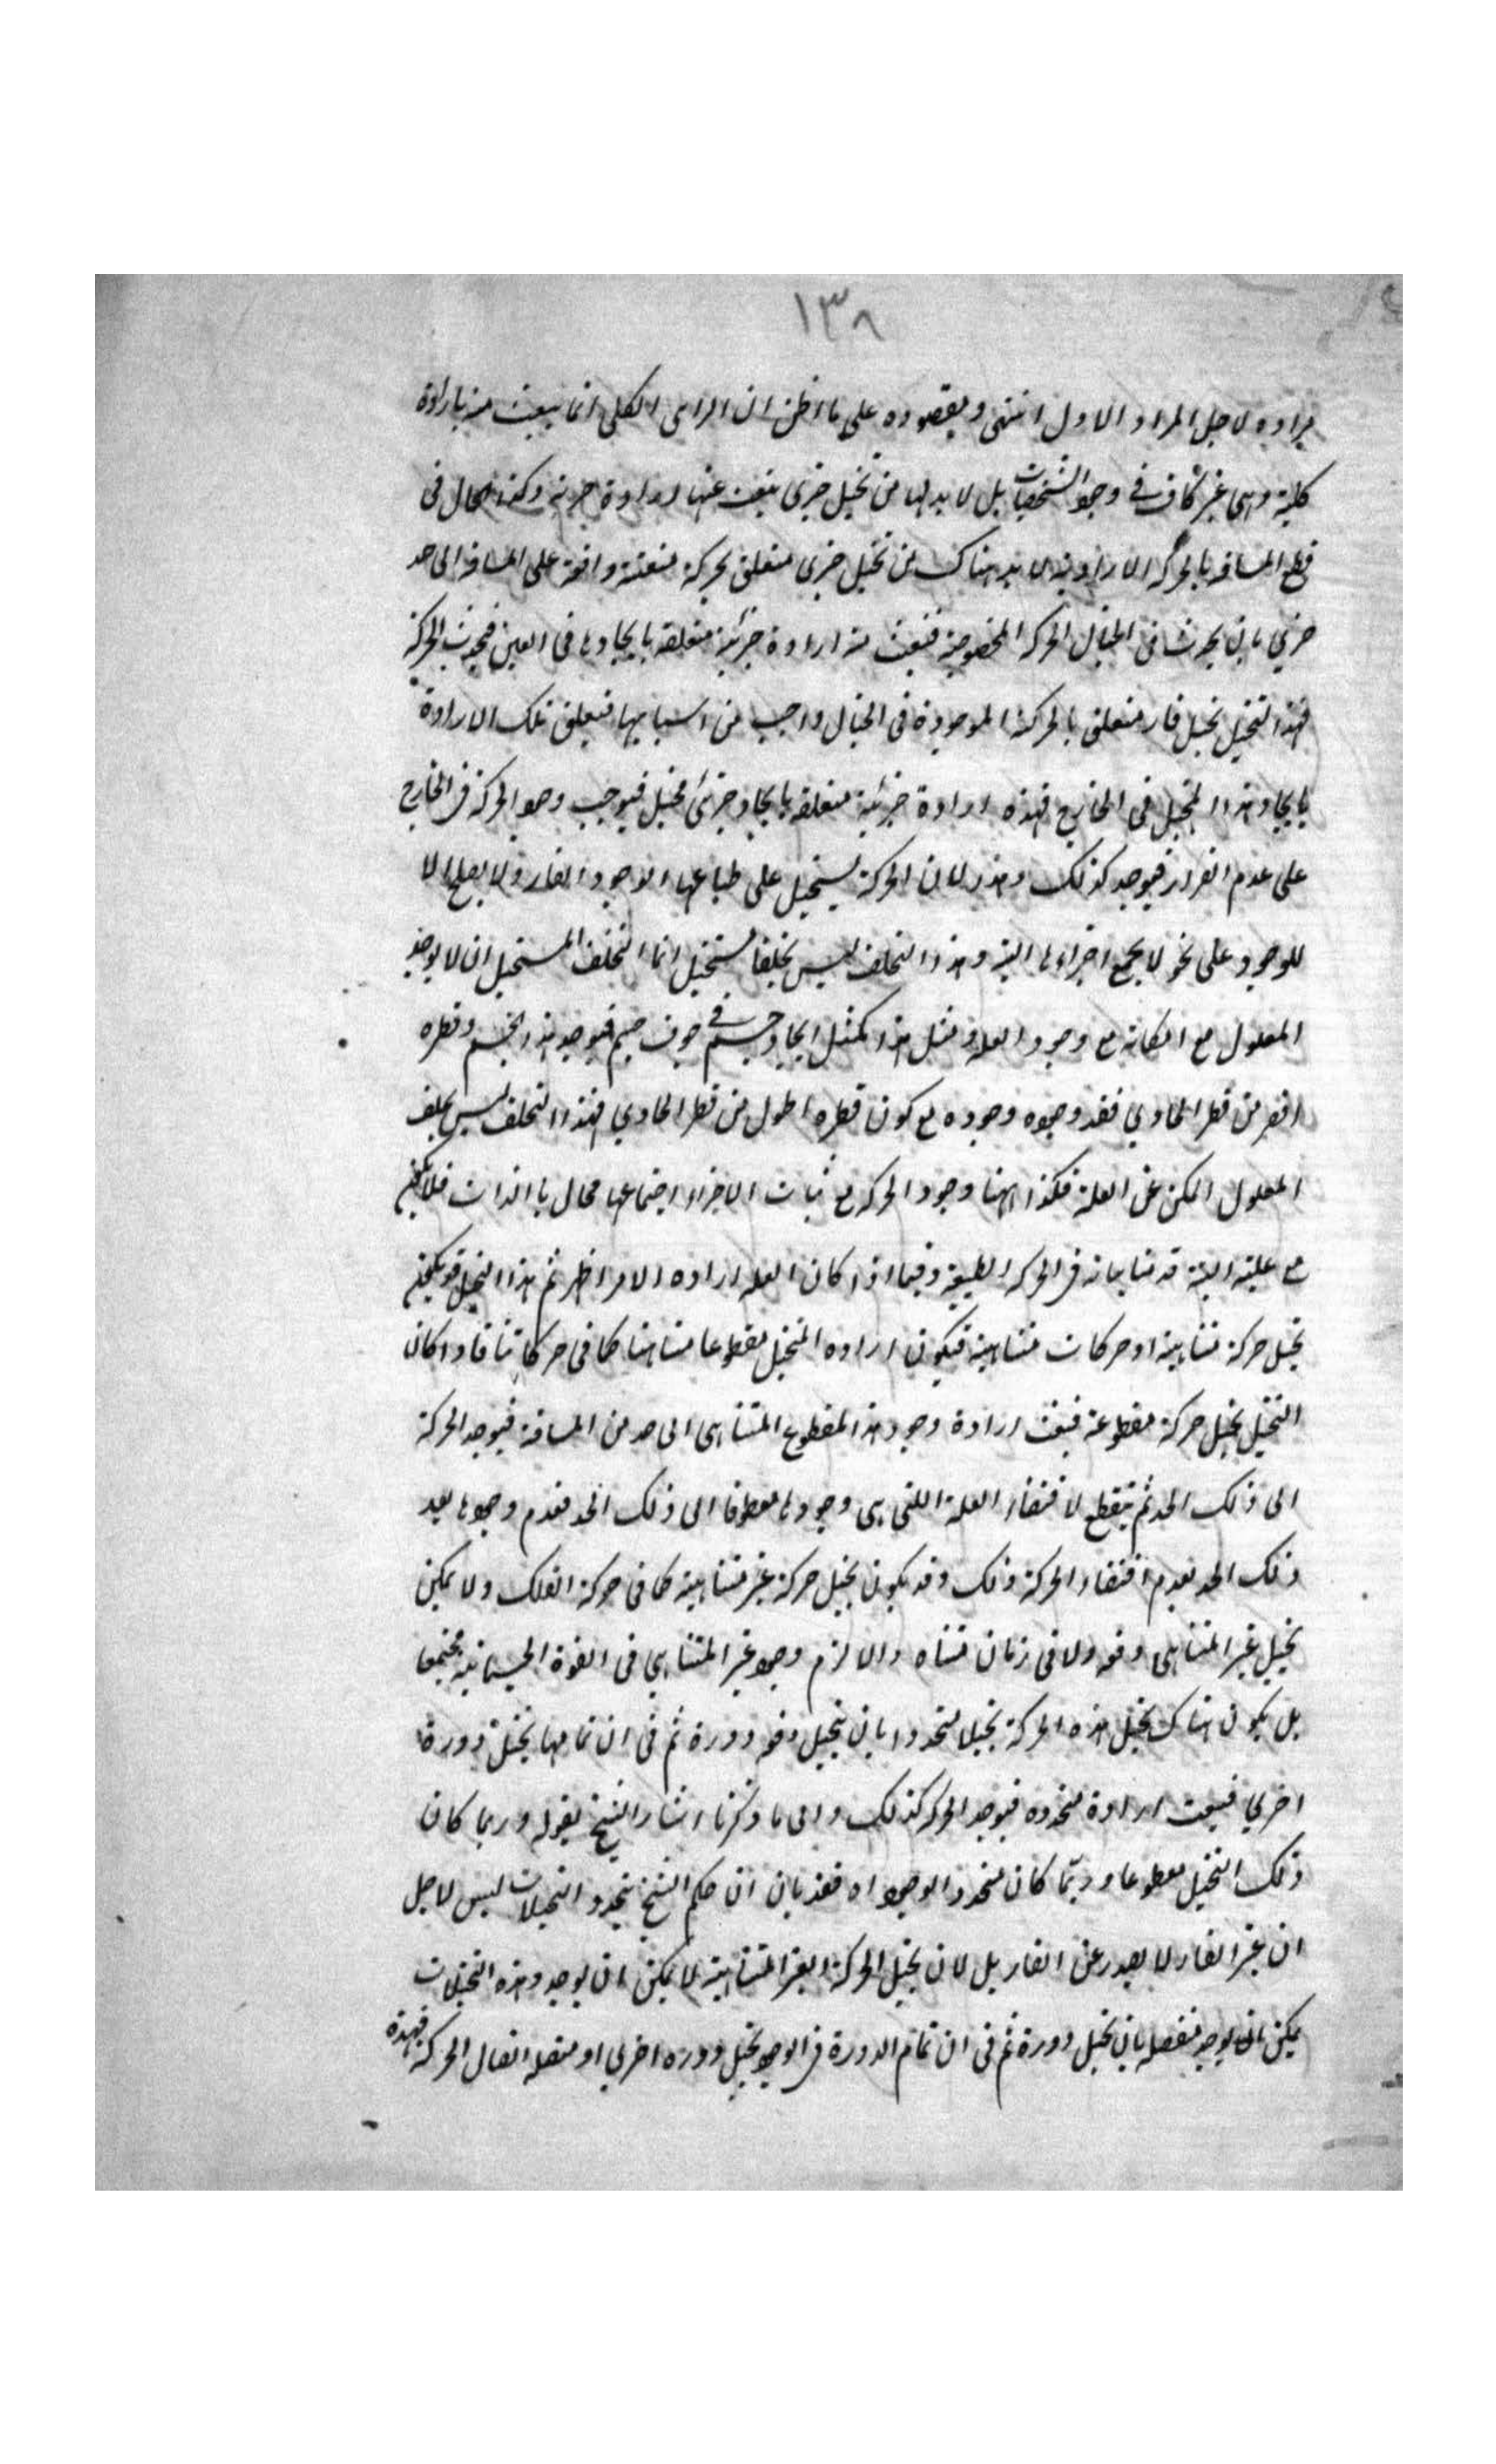 ١٣٨
مراده لاجل المراد الاول انتهى ومقصوده على ما اظن ان الراى الكلى انما ينبعث منه ارادة
كلية وهى غير كاف فى وجود الشخصيات بل لا بد لها من تخيل جزئى ينبعث عنها ارادة جزئية وكذا الحال فى
قطع المسافة بالحركة الارادية لا بد هناك من تخيل جزئى متعلق بحركة متعينة واقعة على المسافة الى حد
جزئي بان يحدث فى الخيال الحركة المخصوصة فينبعث منه ارادة جزئية متعلقة بايجادها فى العين فيحدث الحركة
فهذا التخيل تخيل قار متعلق بالحركة الموجودة فى الخيال واجب من اسبابها فيتعلق تلك الارادة
بايجاد هذا المتخيل فى الخارج فهذه ارادة جزئية متعلقة بايجاد جزئى متخيل فيوجب وجود الحركة فى الخارج
على عدم القرار فيوجد كذلك وهذا لان الحركة يستحيل على طباعها الوجود القار ولا يصلح الا
للوجود على نحو لا يجمع اجزاءها البتة وهذا التخلف ليس تخلفا مستحيل انما التخلف المستحيل ان لا يوجد
المعلول مع امكانه مع وجود العلة ومثل هذا كمثل ايجاد جسم فى جوف جسم فيوجد هذا الجسم وقطره
اقصر من قطر الحاوي فقد وجوده مع كون قطره اطول من قطر الحاوي فهذا التخلف ليس تخلف
المعلول الممكن عن العلة فكذا ههنا وجود الحركة مع ثبات الاجزاء اجتماعها محال بالذات فلا يمكن
مع علية البتة قد بيانه فى الحركة الطبيعية وفيما اذا كان العلة ارادة الامر اظهر ثم هذا التخيل قد يكون
تخيل حركة متناهية او حركات متناهية فيكون ارادة المتخيل مقطوعا متناهيا كما فى حركاتنا فاذا كان
التخيل تخيل حركة مقطوعة فينبعث ارادة وجود هذا المقطوع المتناهى الى حد من المسافة فيوجد الحركة
الى ذلك الحد ثم ينقطع لاقتضاء العلة اللتى هى وجودها مقطوعا الى ذلك الحد فعدم وجودها بعد
ذلك الحد لعدم اقتضاء الحركة ذلك وقد يكون تخيل حركة غير متناهية كما فى حركة الفلك ولا يمكن
تخيل غير المتناهى دفعة ولا فى زمان متناه والا لزم وجود غير المتناهي فى القوة الجسمانية مجتمعا
بل يكون هناك تخيل هذه الحركة تخيلا متجددا بان يتخيل دفعة دورة ثم فى ان تمامها يتخيل دورة
اخرى فينبعث ارادة متجددة فيوجد الحركة كذلك والى ما ذكرنا اشار الشيخ بقوله وربما كان
ذلك التخيل مقطوعا وربما كان متجدد الوجود اه فقد بان ان حكم الشيخ بتجدد التخيلات ليس لاجل
ان غير القار لا يصدر عن القار بل لان تخيل الحركة الغير المتناهية لا يمكن ان يوجد وهذه التخيلات
يمكن بان يوجد منفصلة بان تخيل دورة ثم فى ان تمام الدورة فى الوجود تخيل دورة اخرى او متصلة اتصال الحركة فهذه